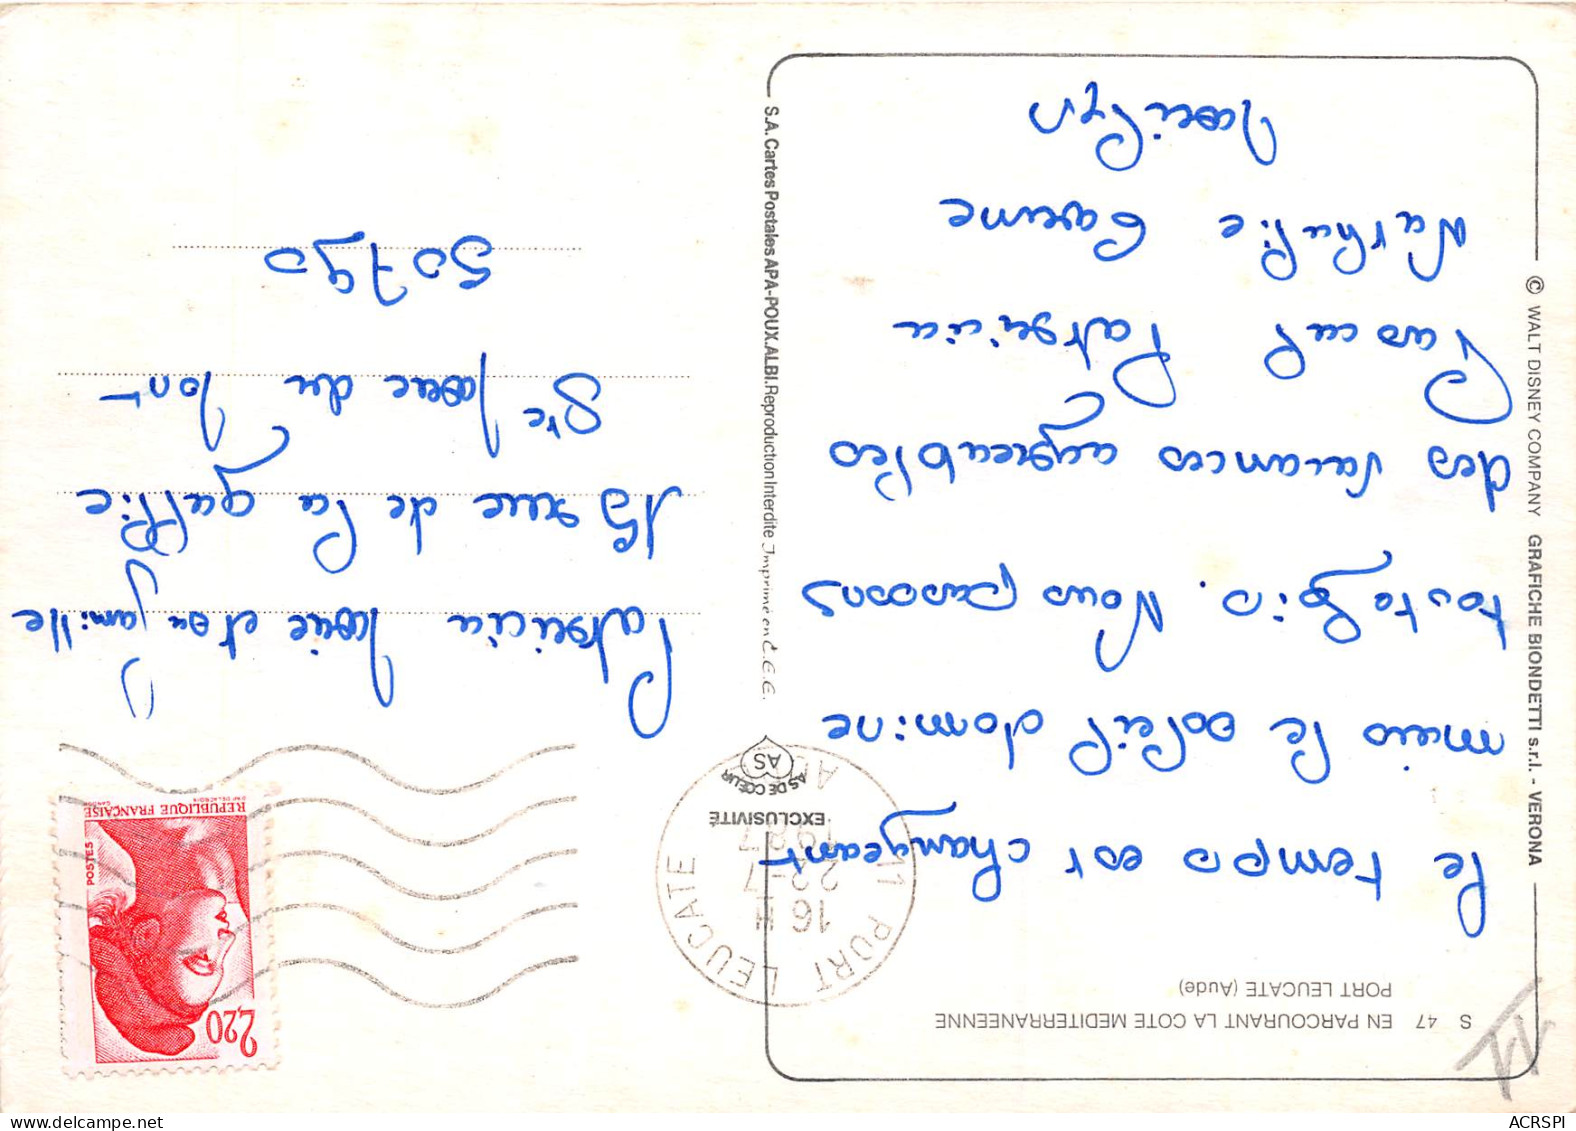 S 47 EN PARCOURANT LA COTE MEDITERRANEENNE
PORT LEUCATE (Aude)
le temps est changeant
mais le soleil domine
toutefois. Nous passons
des vacances agréables
Pascal Patricia
Nathalie Carine
EXCLUSIVITÉ
AS DE CŒUR
AS
11 PORT LEUCATE
16 H
22-7
1987
AUDE
2,20
POSTES
REPUBLIQUE FRANÇAISE
Patricia et sa famille
13 rue de la
Ste du
50790
© WALT DISNEY COMPANY GRAFICHE BIONDETTI s.r.l. - VERONA
S.A. Cartes Postales APA-POUX. ALBI. Reproduction Interdite Imprimé en C.E.E.
ACRSPI